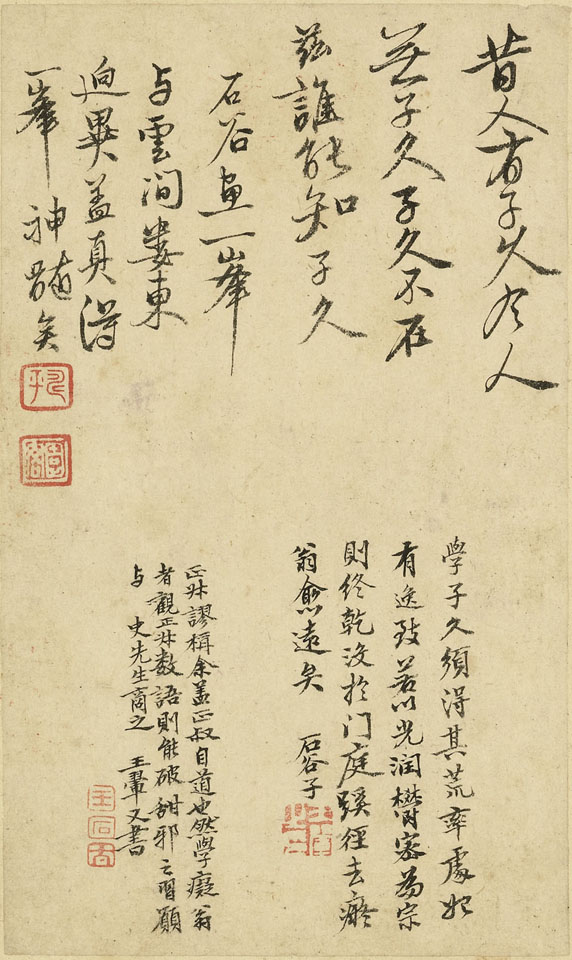 昔人有子久今人
無子久子久不在
茲誰能知子久
石谷畫一峯
与雲間婁東
迥異蓋真得
一峯神髓矣
學子久須得其荒率處始
有逸致若以光潤欝密為宗
則終乾沒於门庭蹊徑去癡
翁愈遠矣 石谷子
正叔謬稱余蓋正叔自道也然學癡翁
者觀正叔數語則能破甜邪之習願
与 史先生商之 王翬又書
王石谷